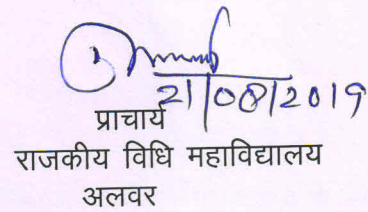 21/08/2019
प्राचार्य
राजकीय विधि महाविद्यालय
अलवर